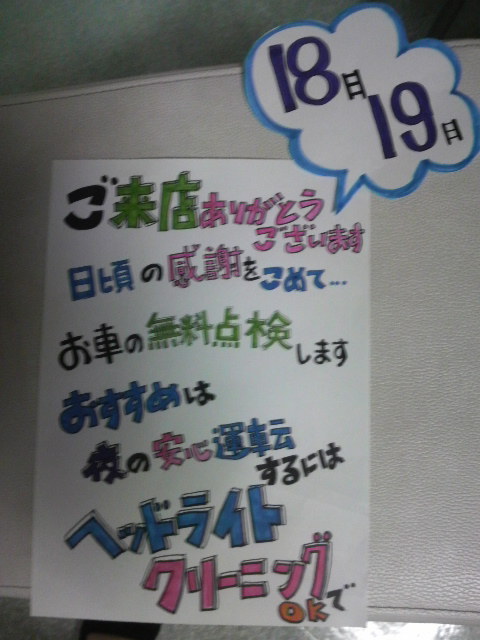 18日
19日
ご来店ありがとう
ございます
日頃の感謝をこめて…
お車の無料点検
します
おすすめは
夜の安心運転
するには
ヘッドライト
クリーニング
OKで